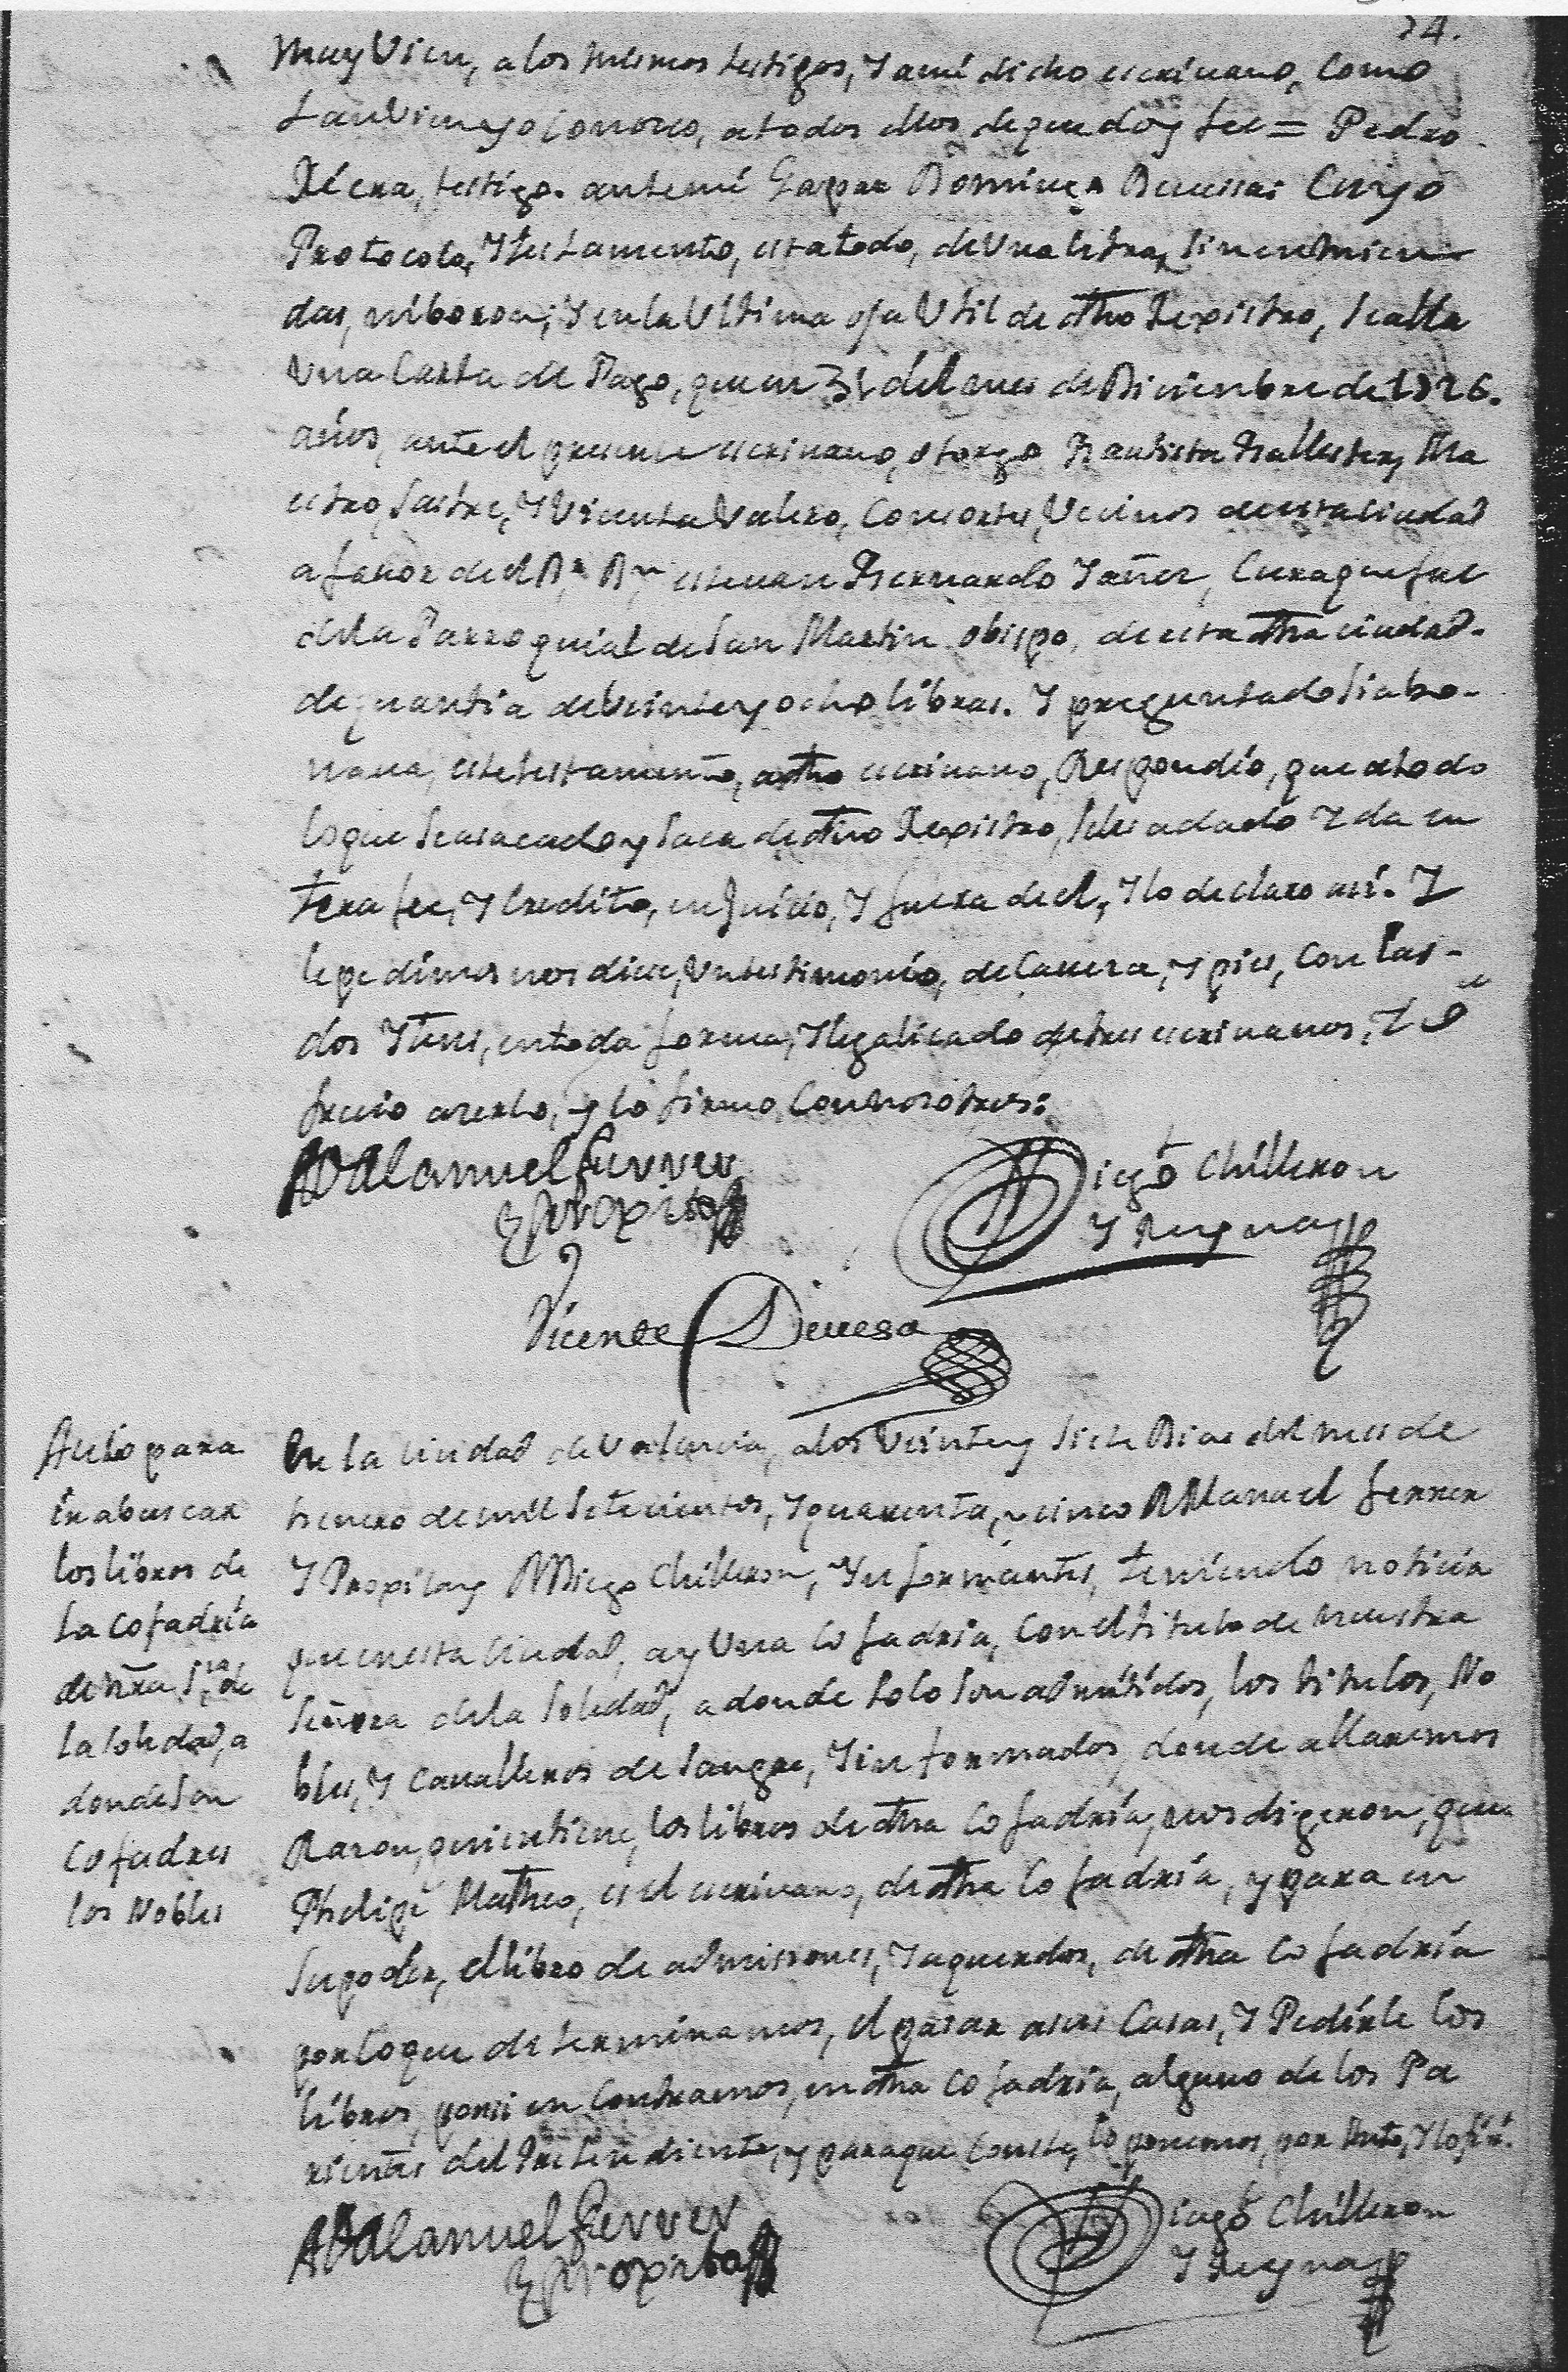 34.
muy Vien, a los mismos testigos, Y ami dicho escrivano, Como
tanvien yo Conosco, atodos ellos de que doy fee = Pedro
Ribera, testigo. antemi Gaspar Dominго Cuyo
Protocolo, Y testamento, esta todo, de Una letra, sin enmien
das, niborron, Y en la Ultima oja Util de dho Rexistro, se alla
Una Carta de Pago, que en 31 del mes de Diciembre de
años, ante el presente escrivano, otorgo Bautista Ballester, Ma
estro, Sastre, Y Vicenta Valero, Consortes, Vecinos de esta Ciudad
a favor de el Dr. Dn. estevan Bernardo Yañez, Cura que fue
de la Parroquial de San Martin obispo, de esta dha ciudad.
de quantia de Veinte y ocho libras. Y preguntado si abo-
nava, este testamento, a dho escrivano, Respondio, que atodo
lo que se asacado y saca de dho Rexistro, seles adado Y da en
tera fee, Y Credito, en Juicio, Y fuera de el, Y lo declaro asi. Y
le pedimos nos diese, Un testimonio, de Cavera, Y pies, Con Las-
dos Ytems, entoda forma, Y legalicado de tres escrivanos, Y o
frecio aserlo, y lo firmo, Connosotros:
D Manuel Ferrer
y Proxita
Diego Chilleron
Y Reyna
Vicente Devesa
Auto para
ir abuscar
los libros de
la Cofadria
de nra Sra. de
la soledad, a
donde son
Cofadres
los Nobles
En la Ciudad de Valencia, alos Veinte y siete Dias del mes de
henero de mil setecientos, Y quarenta, y cinco D Manuel ferrer
Y Proxita y D Diego Chilleron, Ynformantes, teniendo noticia
que en esta Ciudad, ay Una Cofadria, Con el titulo de nuestra
Señora de la Soledad, a donde solo son admitidos, los titulos, No
bles, Y Cavalleros de sangre, Y informados, donde allaremos
Raron, quien tiene, los libros de dha Cofadria, nos digeron, que
Phelipe Matheo, es el escrivano, de dha Cofadria, y para en
supoder, el libro de admisiones, Y aquerdos, de dha Cofadria
por lo que determinamos, el pasar asus Casas, Y Pedirle los
libros, por si en Contramos, en dha Cofadria, alguno de los Pa
rientes del Pretendiente, y para que Conste, lo ponemos, por Auto, Y lo firm.
D Manuel Ferrer
y Proxita
Diego Chilleron
Y Reyna